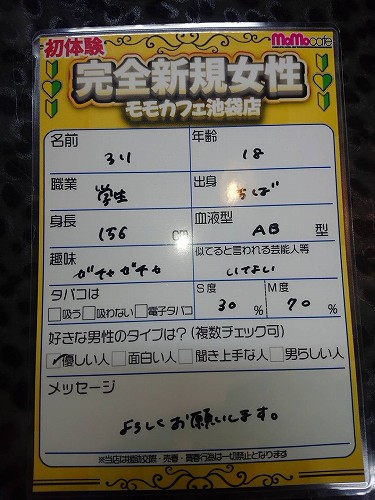 初体験
MoMocafe
完全新規女性
モモカフェ池袋店
名前
るり
年齢
18
職業
学生
出身
ちば
身長
156 cm
血液型
AB 型
趣味
ガチャガチャ
似てると言われる芸能人等
タバコは
□吸う□吸わない□電子タバコ
S度
30 %
M度
70 %
好きな男性のタイプは?(複数チェック可)
☑優しい人□面白い人□聞き上手な人□男らしい人
メッセージ
よろしくお願いします。
※当店は援助交際・売春・買春行為は一切禁止となります